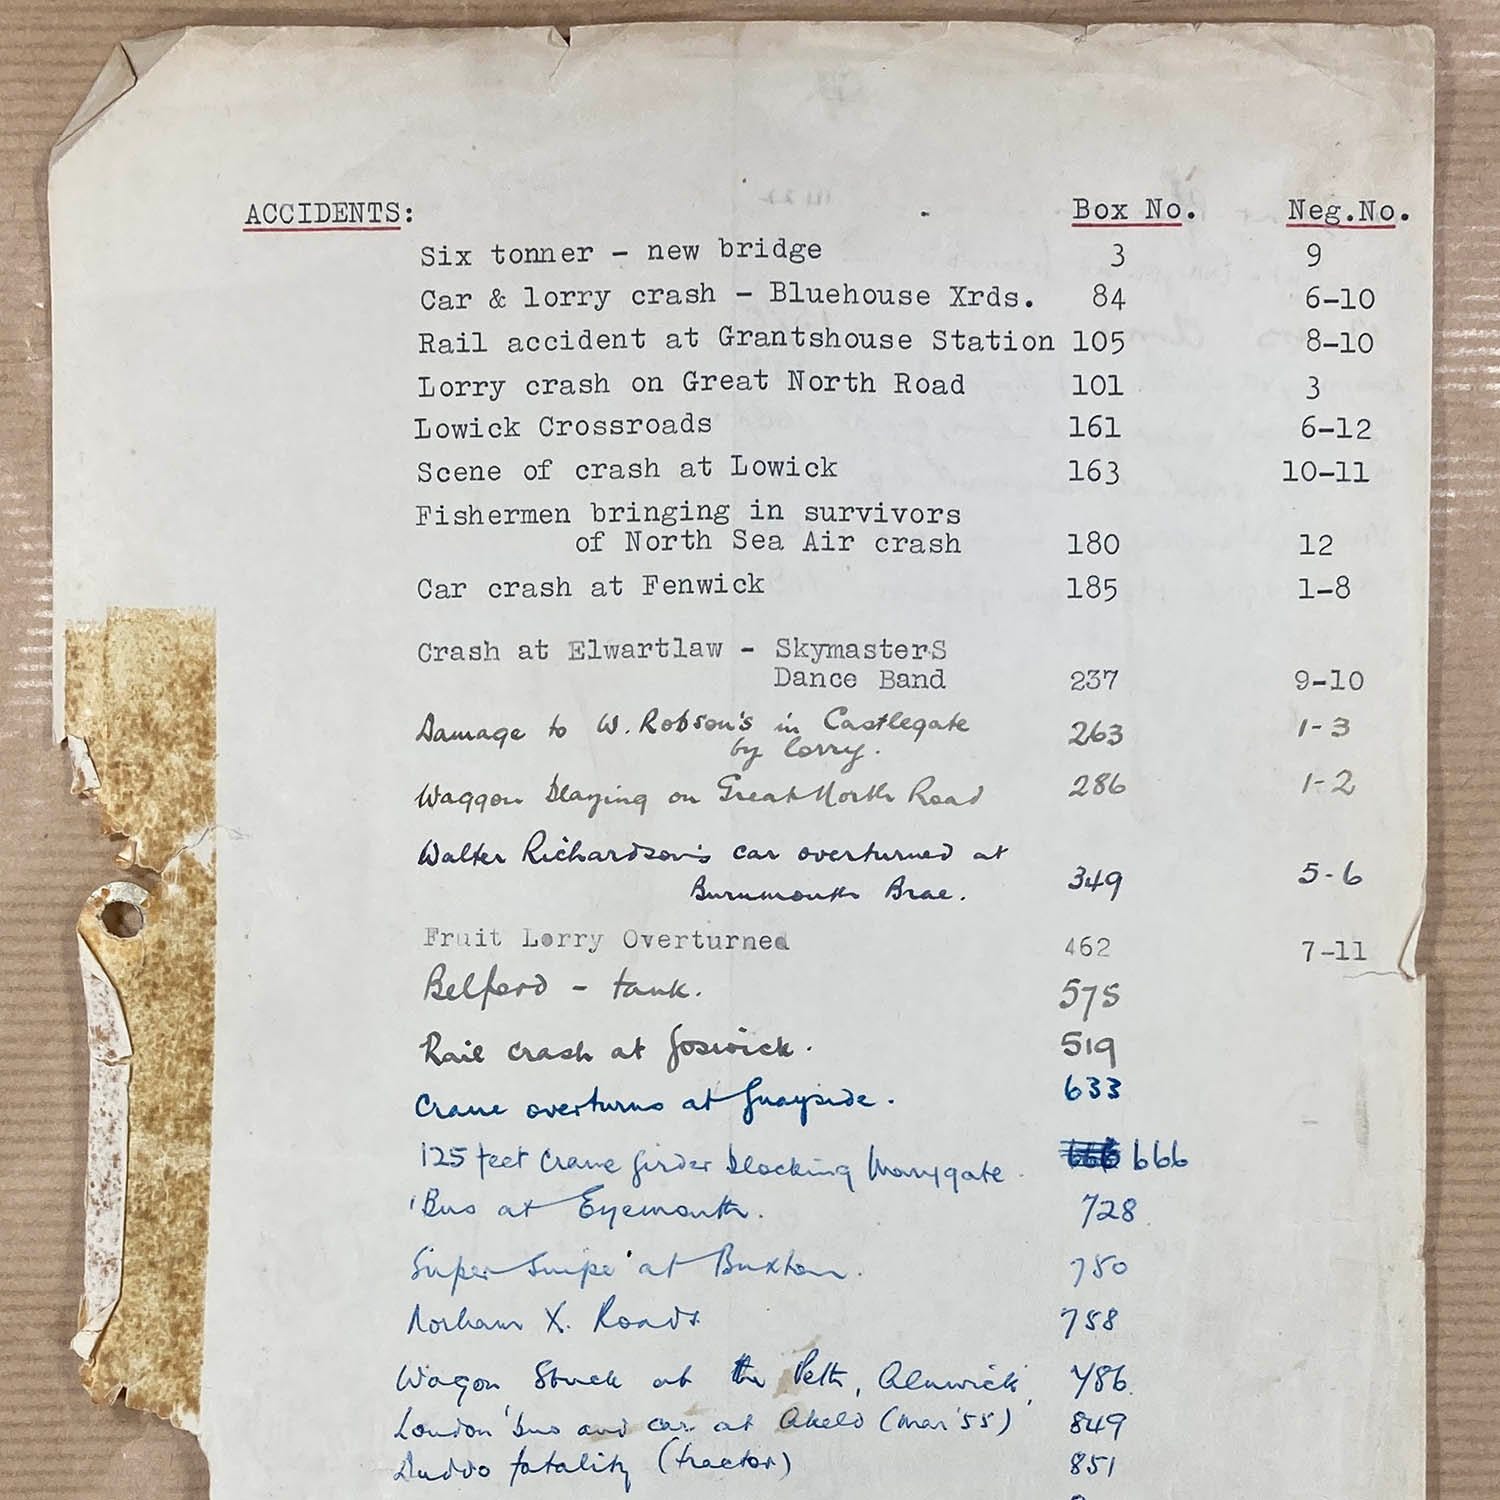 ACCIDENTS: Box No. Neg.No.
Six tonner - new bridge 3 9
Car & lorry crash - Bluehouse Xrds. 84 6-10
Rail accident at Grantshouse Station 105 8-10
Lorry crash on Great North Road 101 3
Lowick Crossroads 161 6-12
Scene of crash at Lowick 163 10-11
Fishermen bringing in survivors
of North Sea Air crash 180 12
Car crash at Fenwick 185 1-8
Crash at Elwartlaw - SkymasterS
Dance Band 237 9-10
Damage to W. Robson's in Castlegate 263 1-3
by lorry.
Waggon blazing on Great North Road 286 1-2
Walter Richardson's car overturned at
Burnmouth Brae. 349 5-6
Fruit Lorry Overturned 462 7-11
Belford - tank. 575
Rail crash at Goswick. 519
Crane overturns at Quayside. 633
125 feet Crane girder blocking Marygate. 666 666
'Bus at Eyemouth. 728
Super Snipe' at Buxton. 750
Norham X. Roads 758
Wagon Stuck at the Peth, Alnwick, 786.
London 'bus and car at Akeld (Mar '55) 849
Duddo fatality (tractor) 851